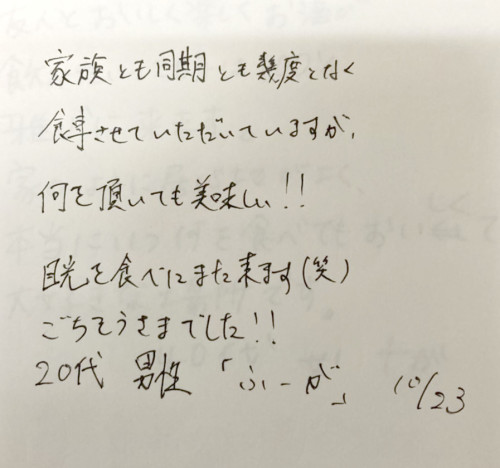 家族とも同期とも幾度となく
食事させていただいていますが、
何を頂いても美味しい!!
目光を食べにまた来ます(笑)
ごちそうさまでした!!
20代 男性 「ふーが」 10/23